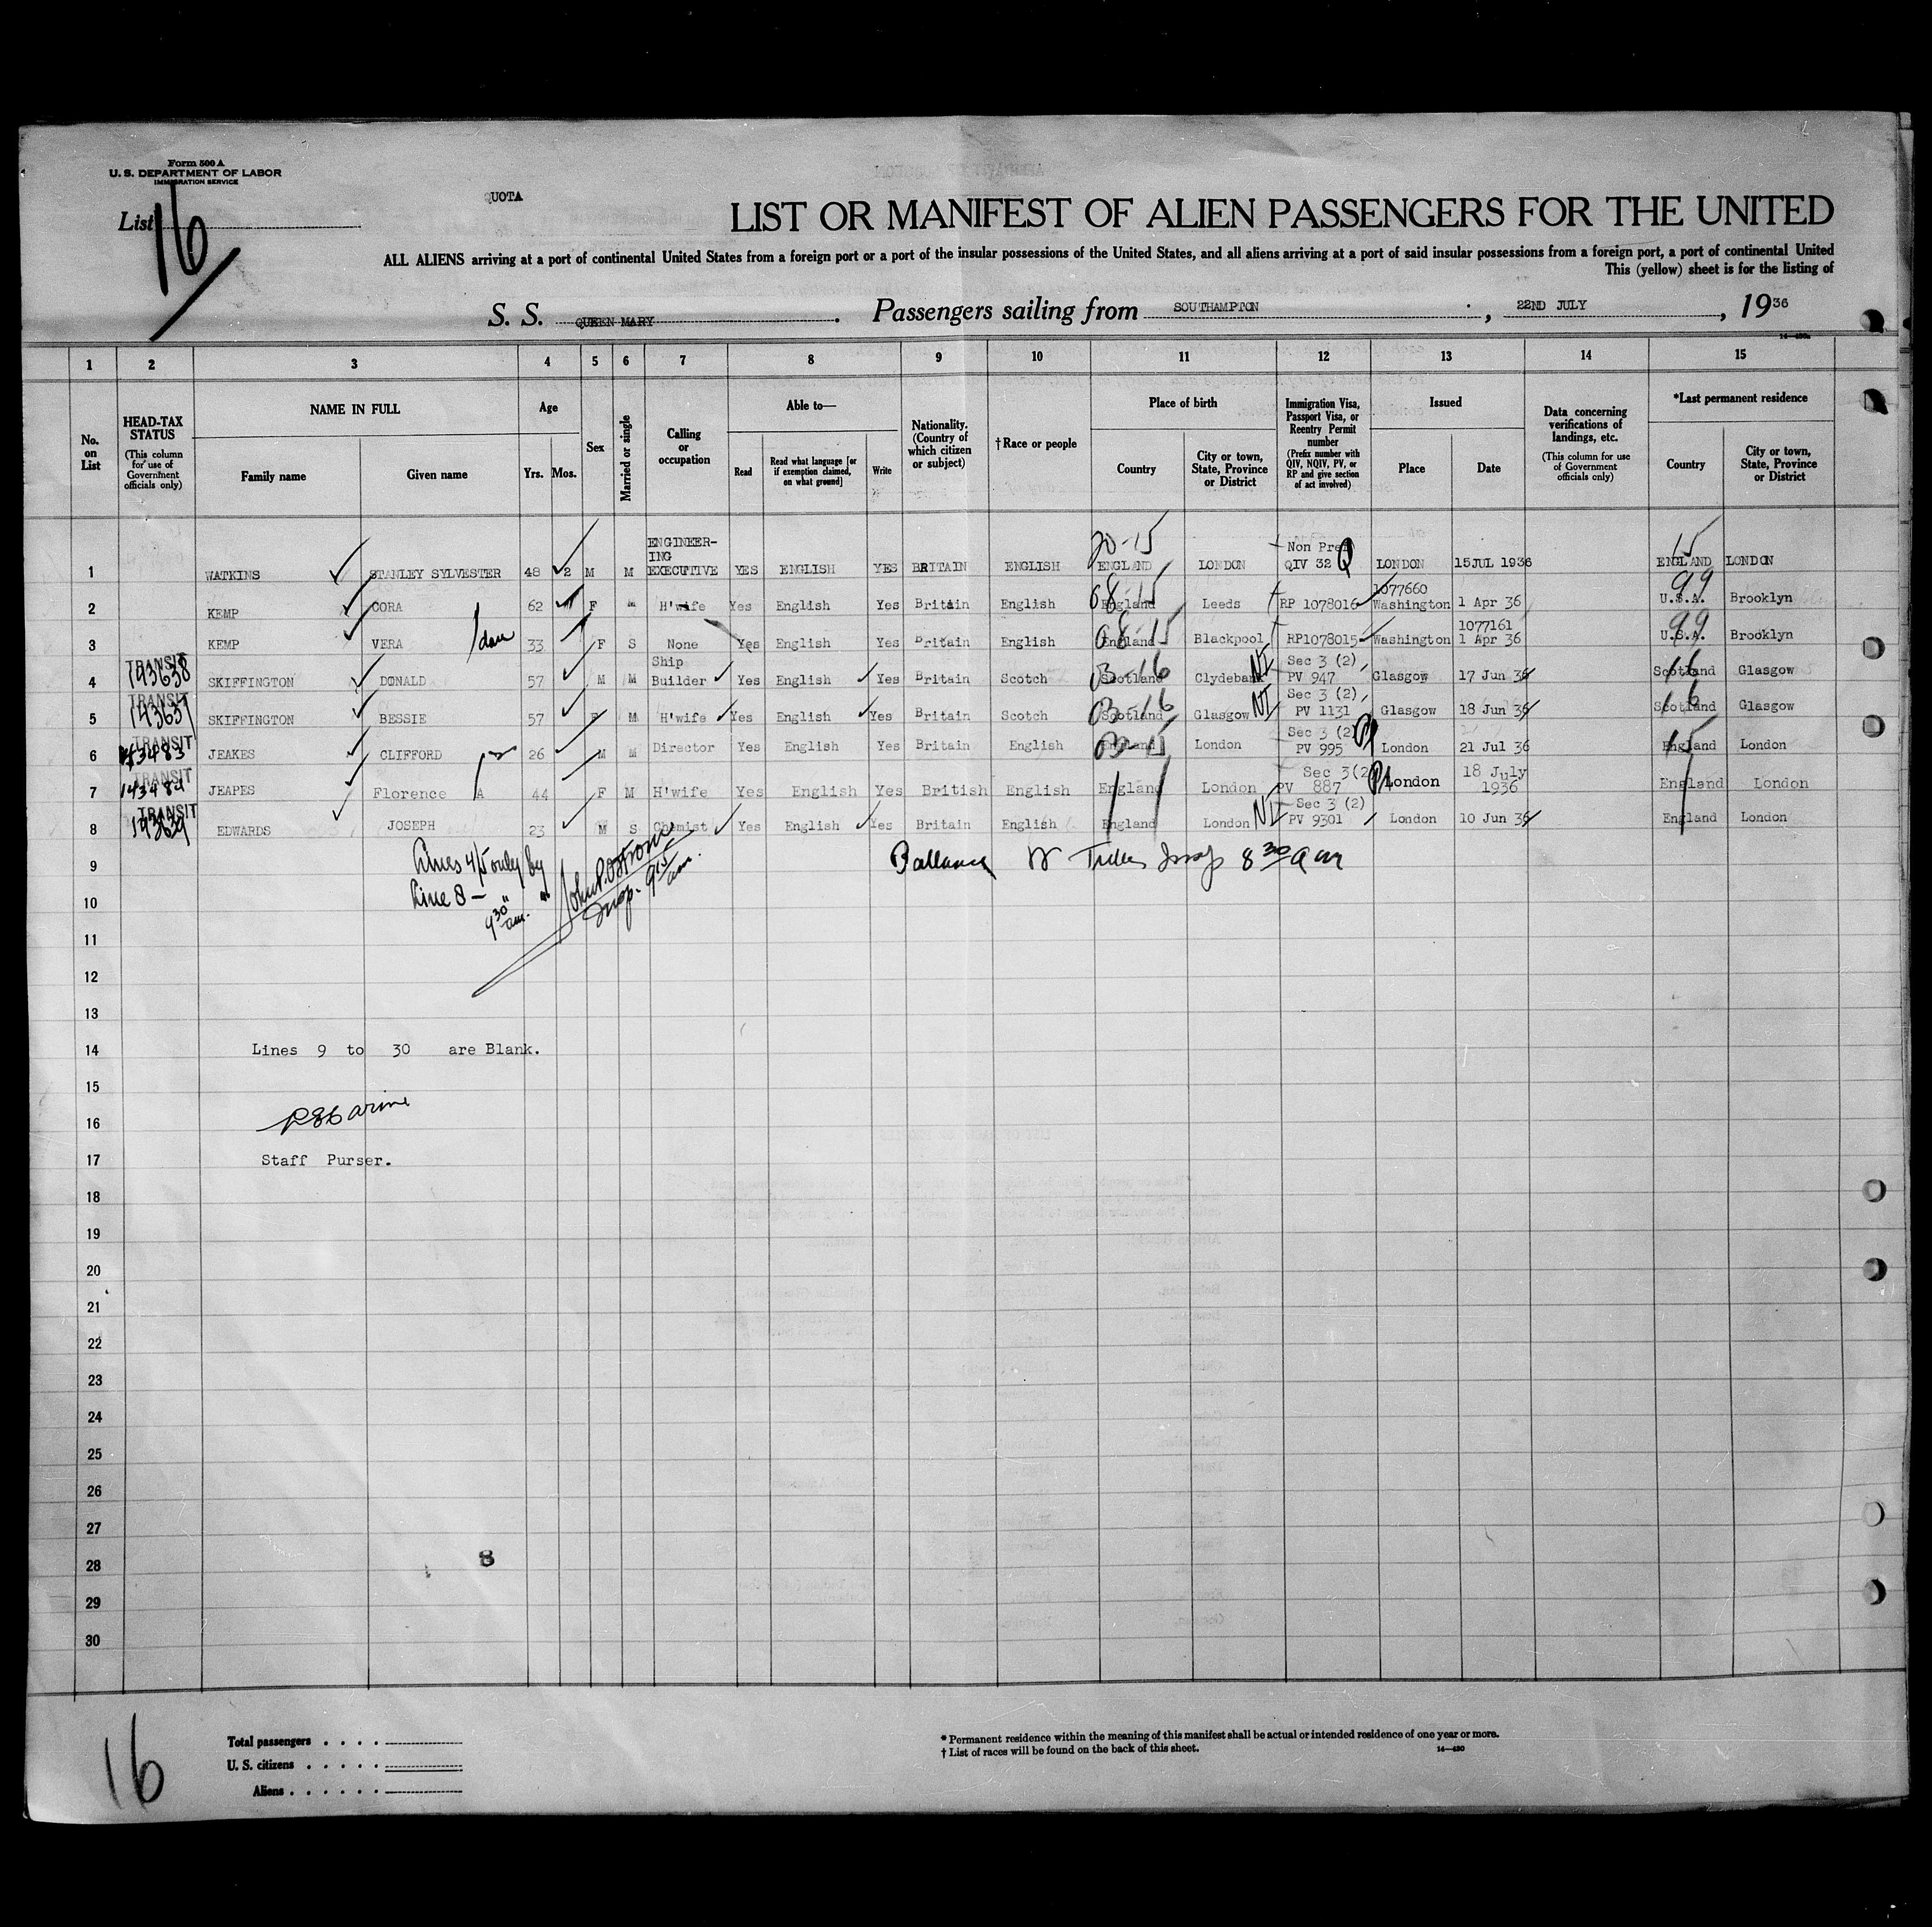 Form 500 A
U. S. DEPARTMENT OF LABOR
IMMIGRATION SERVICE
List 16
QUOTA
LIST OR MANIFEST OF ALIEN PASSENGERS FOR THE UNITED
ALL ALIENS arriving at a port of continental United States from a foreign port or a port of the insular possessions of the United States, and all aliens arriving at a port of said insular possessions from a foreign port, a port of continental United
This (yellow) sheet is for the listing of
S. S. QUEEN MARY. Passengers sailing from SOUTHAMPTON, 22ND JULY, 1936
14—430a
1 2 3 4 5 6 7 8 9 10 11 12 13 14 15
No. on List
HEAD-TAX STATUS (This column for use of Government officials only)
NAME IN FULL
Family name Given name
Age
Yrs. Mos.
Sex
Married or single
Calling or occupation
Able to—
Read Read what language [or if exemption claimed, on what ground] Write
Nationality. (Country of which citizen or subject)
†Race or people
Place of birth
Country City or town, State, Province or District
Immigration Visa, Passport Visa, or Reentry Permit number (Prefix number with QIV, NQIV, PV, or RP and give section of act involved)
Issued
Place Date
Data concerning verifications of landings, etc. (This column for use of Government officials only)
*Last permanent residence
Country City or town, State, Province or District
1 WATKINS STANLEY SYLVESTER 48 2 M M ENGINEER-ING EXECUTIVE YES ENGLISH YES BRITAIN ENGLISH 20-15 ENGLAND LONDON Non Pref QIV 32 Q LONDON 15JUL 1936 15 ENGLAND LONDON
2 KEMP CORA 62 F M H'wife Yes English Yes Britain English 68-15 England Leeds RP 1078016 1077660 Washington 1 Apr 36 99 U.S.A. Brooklyn
3 KEMP VERA dau 33 F S None Yes English Yes Britain English 68-15 England Blackpool RP1078015 Washington 1077161 1 Apr 36 99 U.S.A. Brooklyn
4 TRANSIT 143638 SKIFFINGTON DONALD 57 M M Ship Builder Yes English Yes Britain Scotch 03-16 Scotland Clydebank NI Sec 3 (2), PV 947 Glasgow 17 Jun 36 16 Scotland Glasgow
5 TRANSIT SKIFFINGTON BESSIE 57 F M H'wife Yes English Yes Britain Scotch 03-16 Scotland Glasgow NI Sec 3 (2), PV 1131 Glasgow 18 Jun 36 16 Scotland Glasgow
6 TRANSIT 143483 JEAKES CLIFFORD 26 M M Director Yes English Yes Britain English 03-15 England London Sec 3 (2) PV 995 London 21 Jul 36 15 England London
7 TRANSIT 143484 JEAPES Florence A 44 F M H'wife Yes English Yes British English England London Sec 3(2) PV 887 London 18 July 1936 England London
8 TRANSIT EDWARDS JOSEPH 23 M S Chemist Yes English Yes Britain English England London NI Sec 3 (2) PV 9301 London 10 Jun 36 England London
9 Lines 4/5 only by Insp. 9 15 am. Insp 8 30 am
10 Line 8 — " " 9 30 am.
11
12
13
14 Lines 9 to 30 are Blank.
15
16
17 Staff Purser.
18
19
20
21
22
23
24
25
26
27
28 8
29
30
16
Total passengers . . . .
U. S. citizens . . . . .
Aliens . . . . . .
* Permanent residence within the meaning of this manifest shall be actual or intended residence of one year or more.
† List of races will be found on the back of this sheet.
14—430